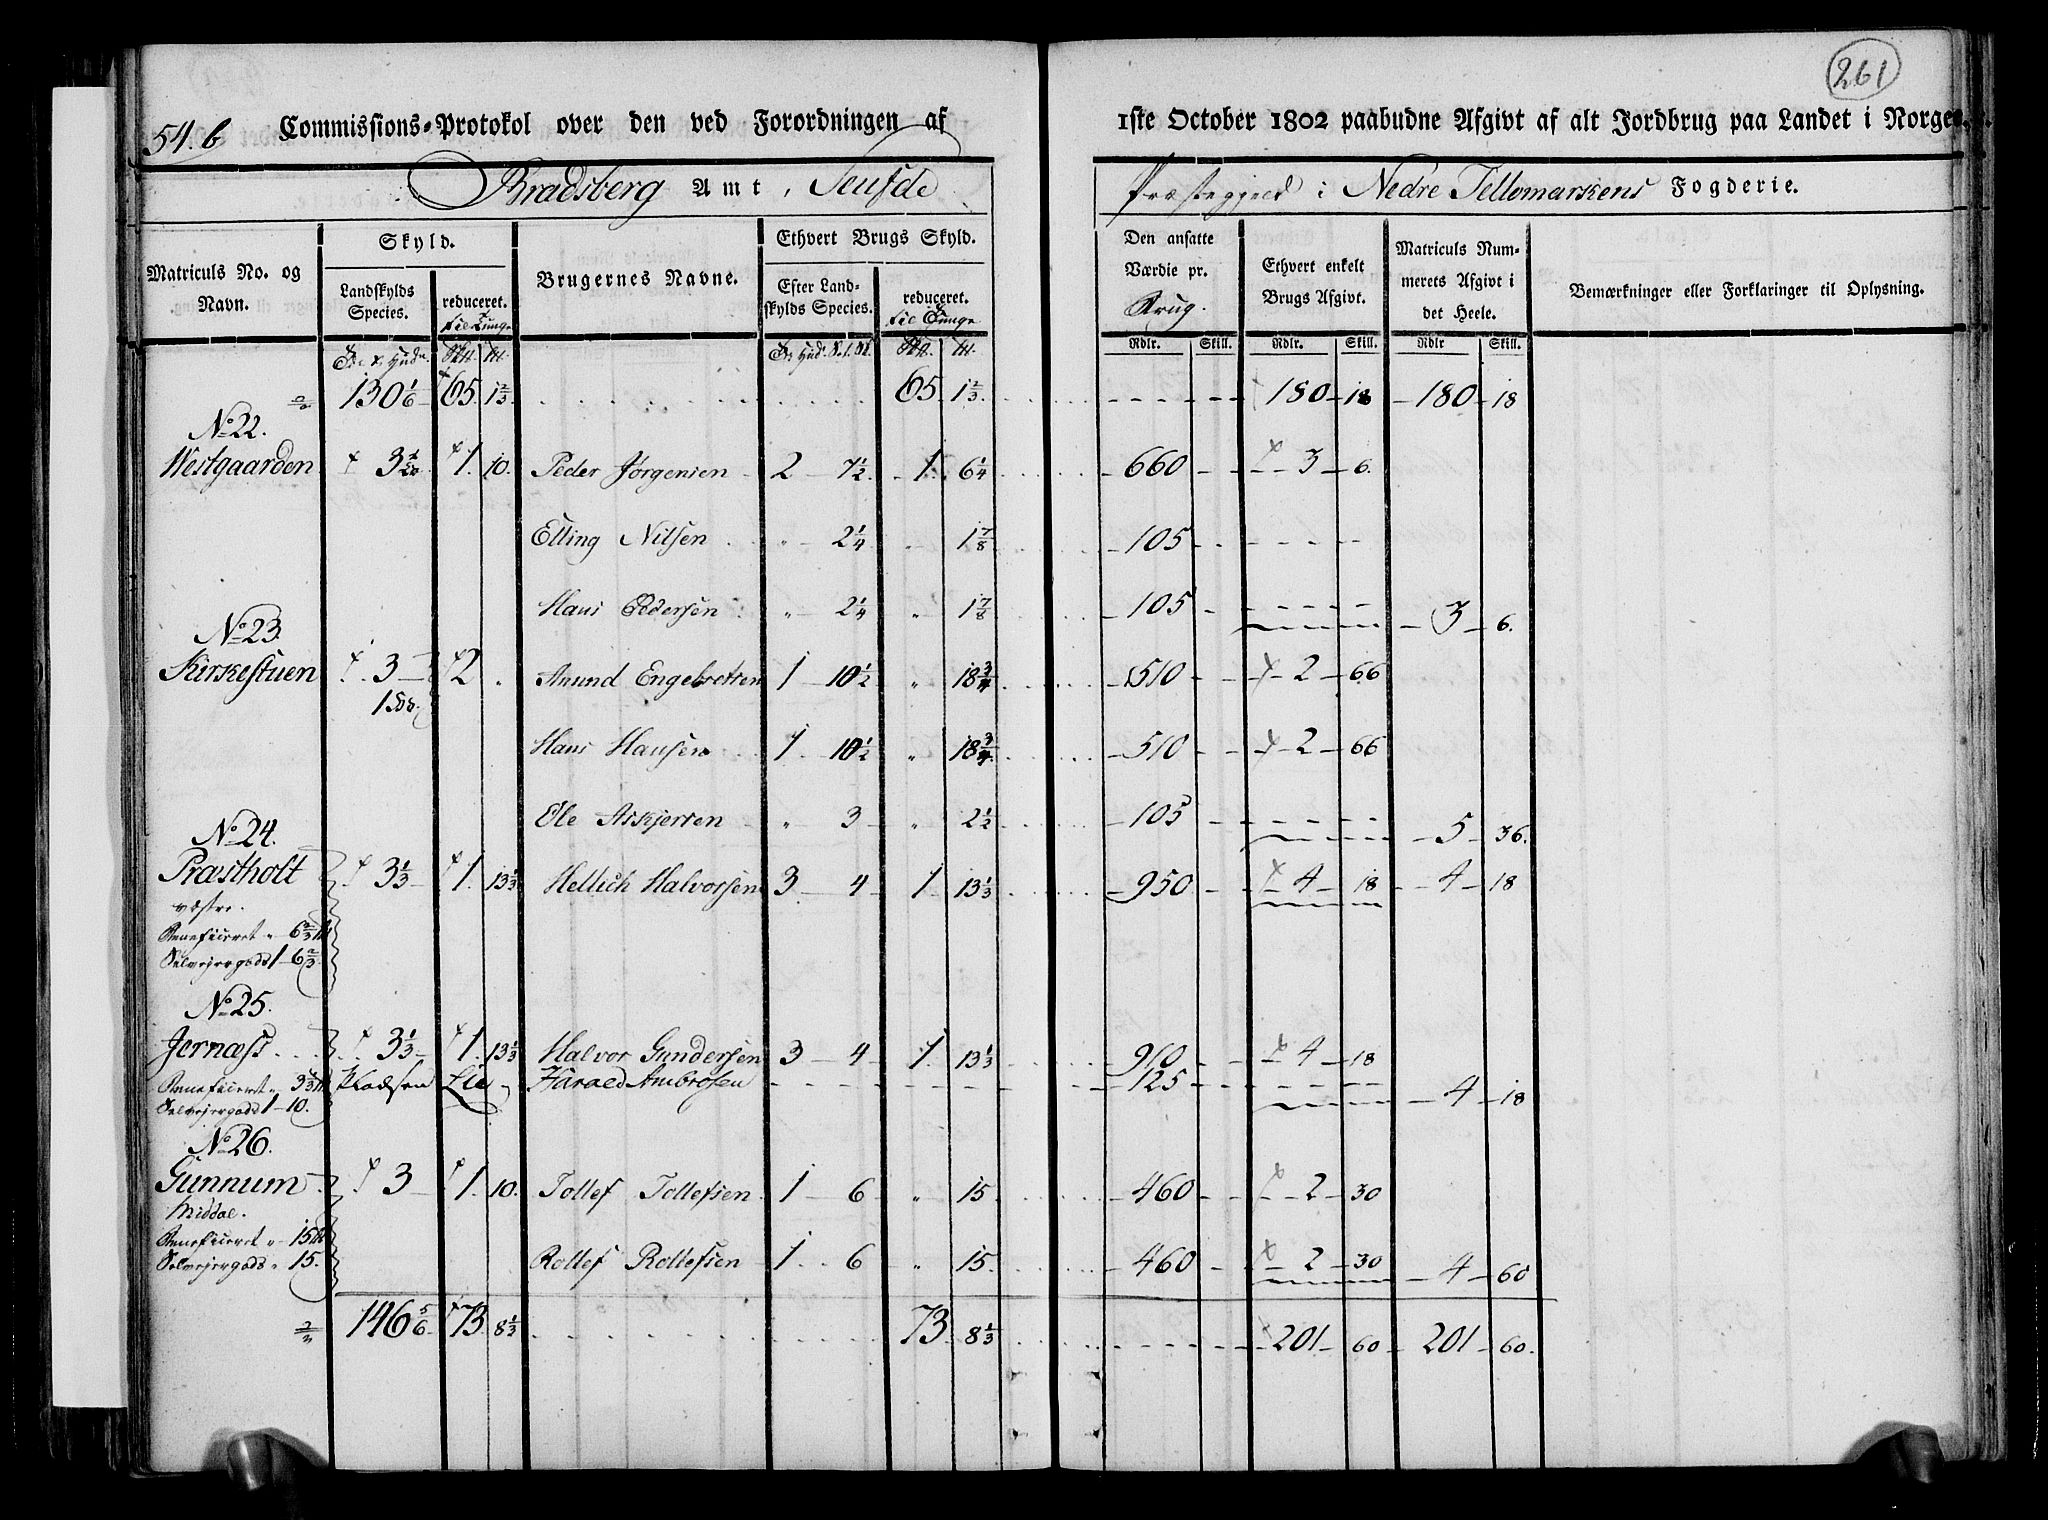 261
54.b Commissions-Protokol over den ved Forordningen af 1ste October 1802 paabudne Afgivt af alt Jordbrug paa Landet i Norge.
Bradsberg Amt, Seufde Præstegjeld i Nedre Tellemarkens Fogderie.
Matriculs No. og Navn. Skyld. Brugernes Navne. Ethvert Brugs Skyld. Den ansatte Værdie pr. Brug. Ethvert enkelt Brugs Afgivt. Matriculs Nummerets Afgivt i det Heele. Bemærkninger eller Forklaringer til Oplysning.
Landskylds Species. reduceret. til Tunge Efter Landskylds Species. reduceret. til Tunge
Rdlr. Skill. Rdlr. Skill. Rdlr Skill.
130 1/6 65. 1 2/3. 65. 1 2/3. 180 18 180 18
No 22.
Westgaarden 1. 10. Peder Jørgensen 2 7 1/2. 1. 6 1/4 660 3 6.
Elling Nilsen 2 1/4 1 7/8 105
Hans Pedersen 2 1/4 1 7/8 105 3 6.
No 23.
Kirkestuen 3 2 Amund Engebretsen 1 10 1/2 18 3/4 510 2 66
Hans Hansen 1 10 1/2 18 3/4 510 2 66
Ole Askjersen 3 2 1/2 105 5 36.
No 24.
Præstholt 3 1/3 1. 13 1/3 Hellich Halvorsen 3 4 1 13 1/3 950 4 18 4 18
væstre.
Beneficeret 6 2/3
Selvejergods 1 6 2/3
No 25.
Jernæss 3 1/3 1. 13 1/3 Halvor Gundersen 3 4 1. 13 1/3 910 4 18
Beneficeret 3 1/3 Pladsen Lie Harald Ambrosen 125
Selvejergods 1 10. 4 18
No 26.
Gunnum 3 1. 10. Tollef Tollefsen 1 6 15 460 2 30
Middal.
Beneficeret 15
Selvejergods 15. Rollef Rollefsen 1 6 15. 460 2 30 4 60
146 5/6 73 8 1/3 73 8 1/3 201 60 201 60.